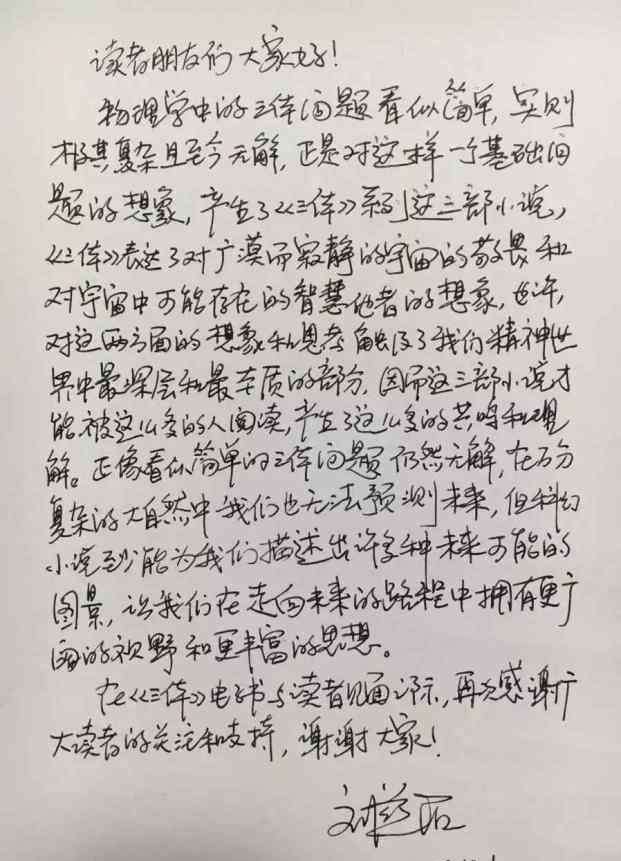 读者朋友们大家好！
物理学中的三体问题看似简单，实则
极其复杂且至今无解，正是对这样一个基础问
题的想象，产生了《三体》系列这三部小说，
《三体》表达了对广漠而寂静的宇宙的敬畏和
对宇宙中可能存在的智慧他者的想象，也许，
对这两方面的想象和思考触及了我们精神世
界中最深层和最本质的部分，因而这三部小说才
能被这么多的人阅读，产生了这么多的共鸣和理
解。正像看似简单的三体问题仍然无解，在万分
复杂的大自然中我们也无法预测未来，但科幻
小说至少能为我们描述出许多种未来可能的
图景，让我们在走向未来的路程中拥有更广
阔的视野和更丰富的思想。
在《三体》电子书与读者见面之际，再次感谢广
大读者的关注和支持，谢谢大家！
刘慈欣